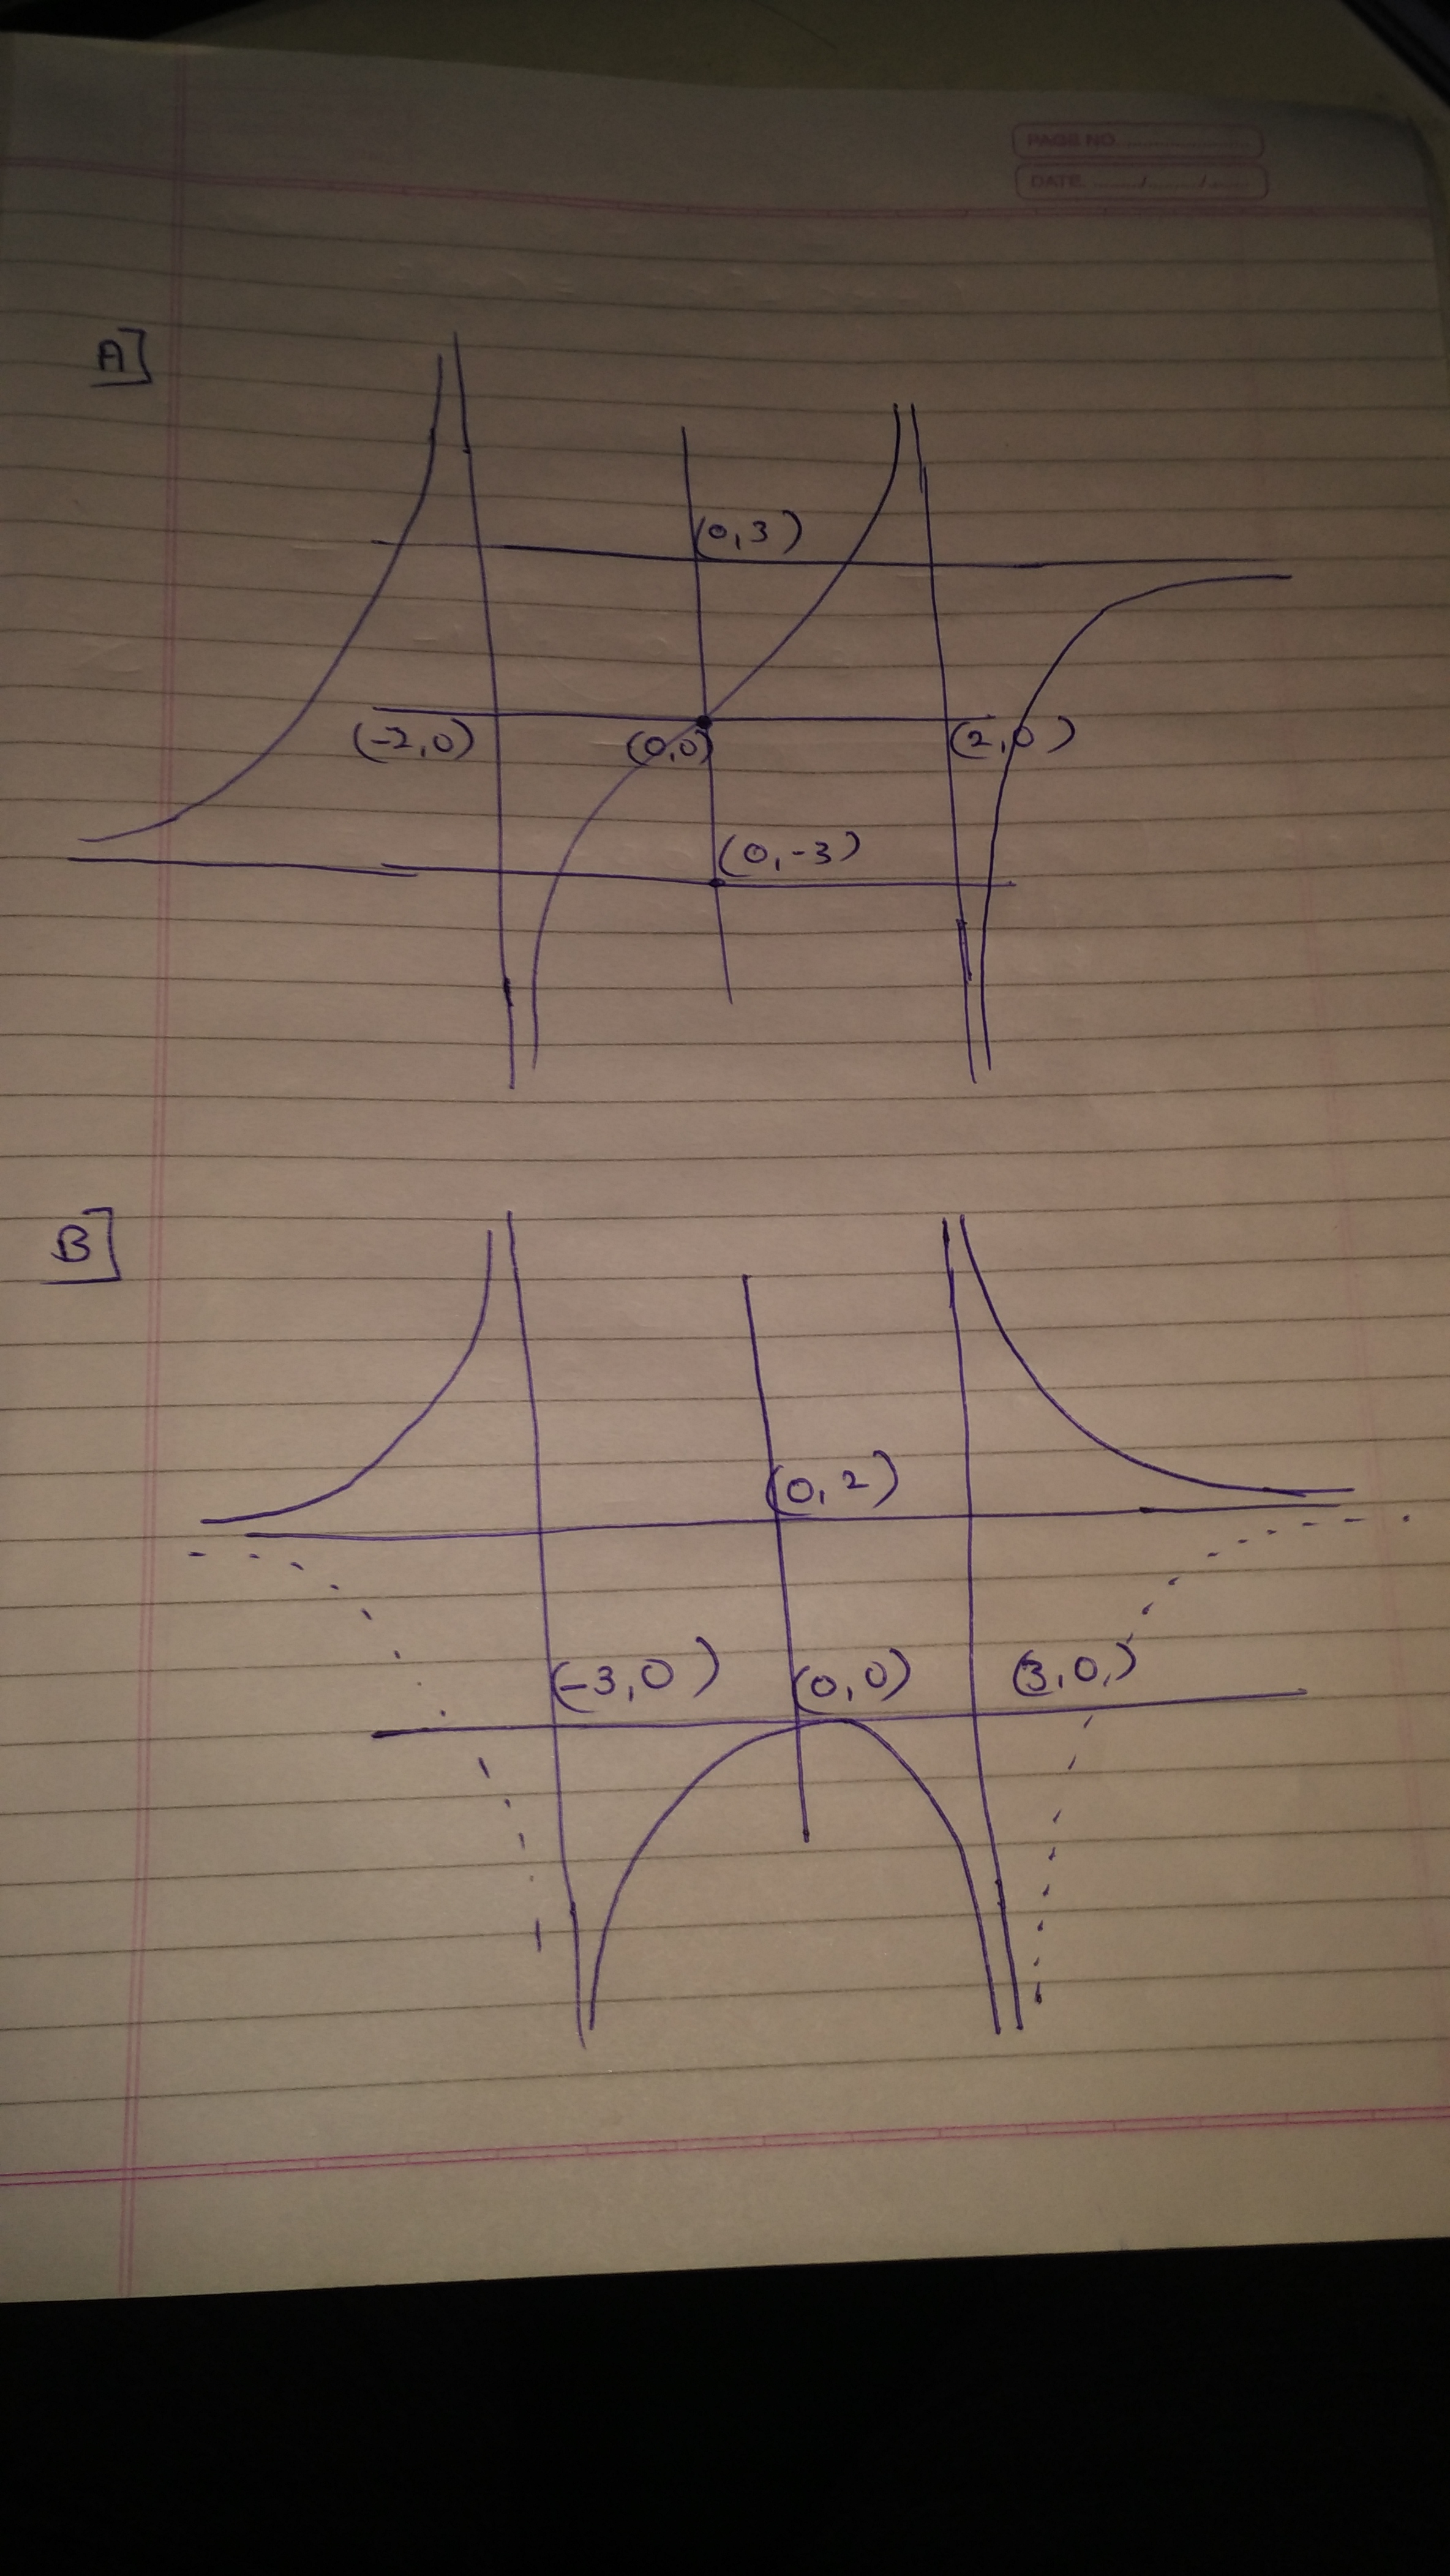 PAGE NO.
DATE / /
A]
(0,3)
(-2,0) (0,0) (2,0)
(0,-3)
B]
(0,2)
(-3,0) (0,0) (3,0)